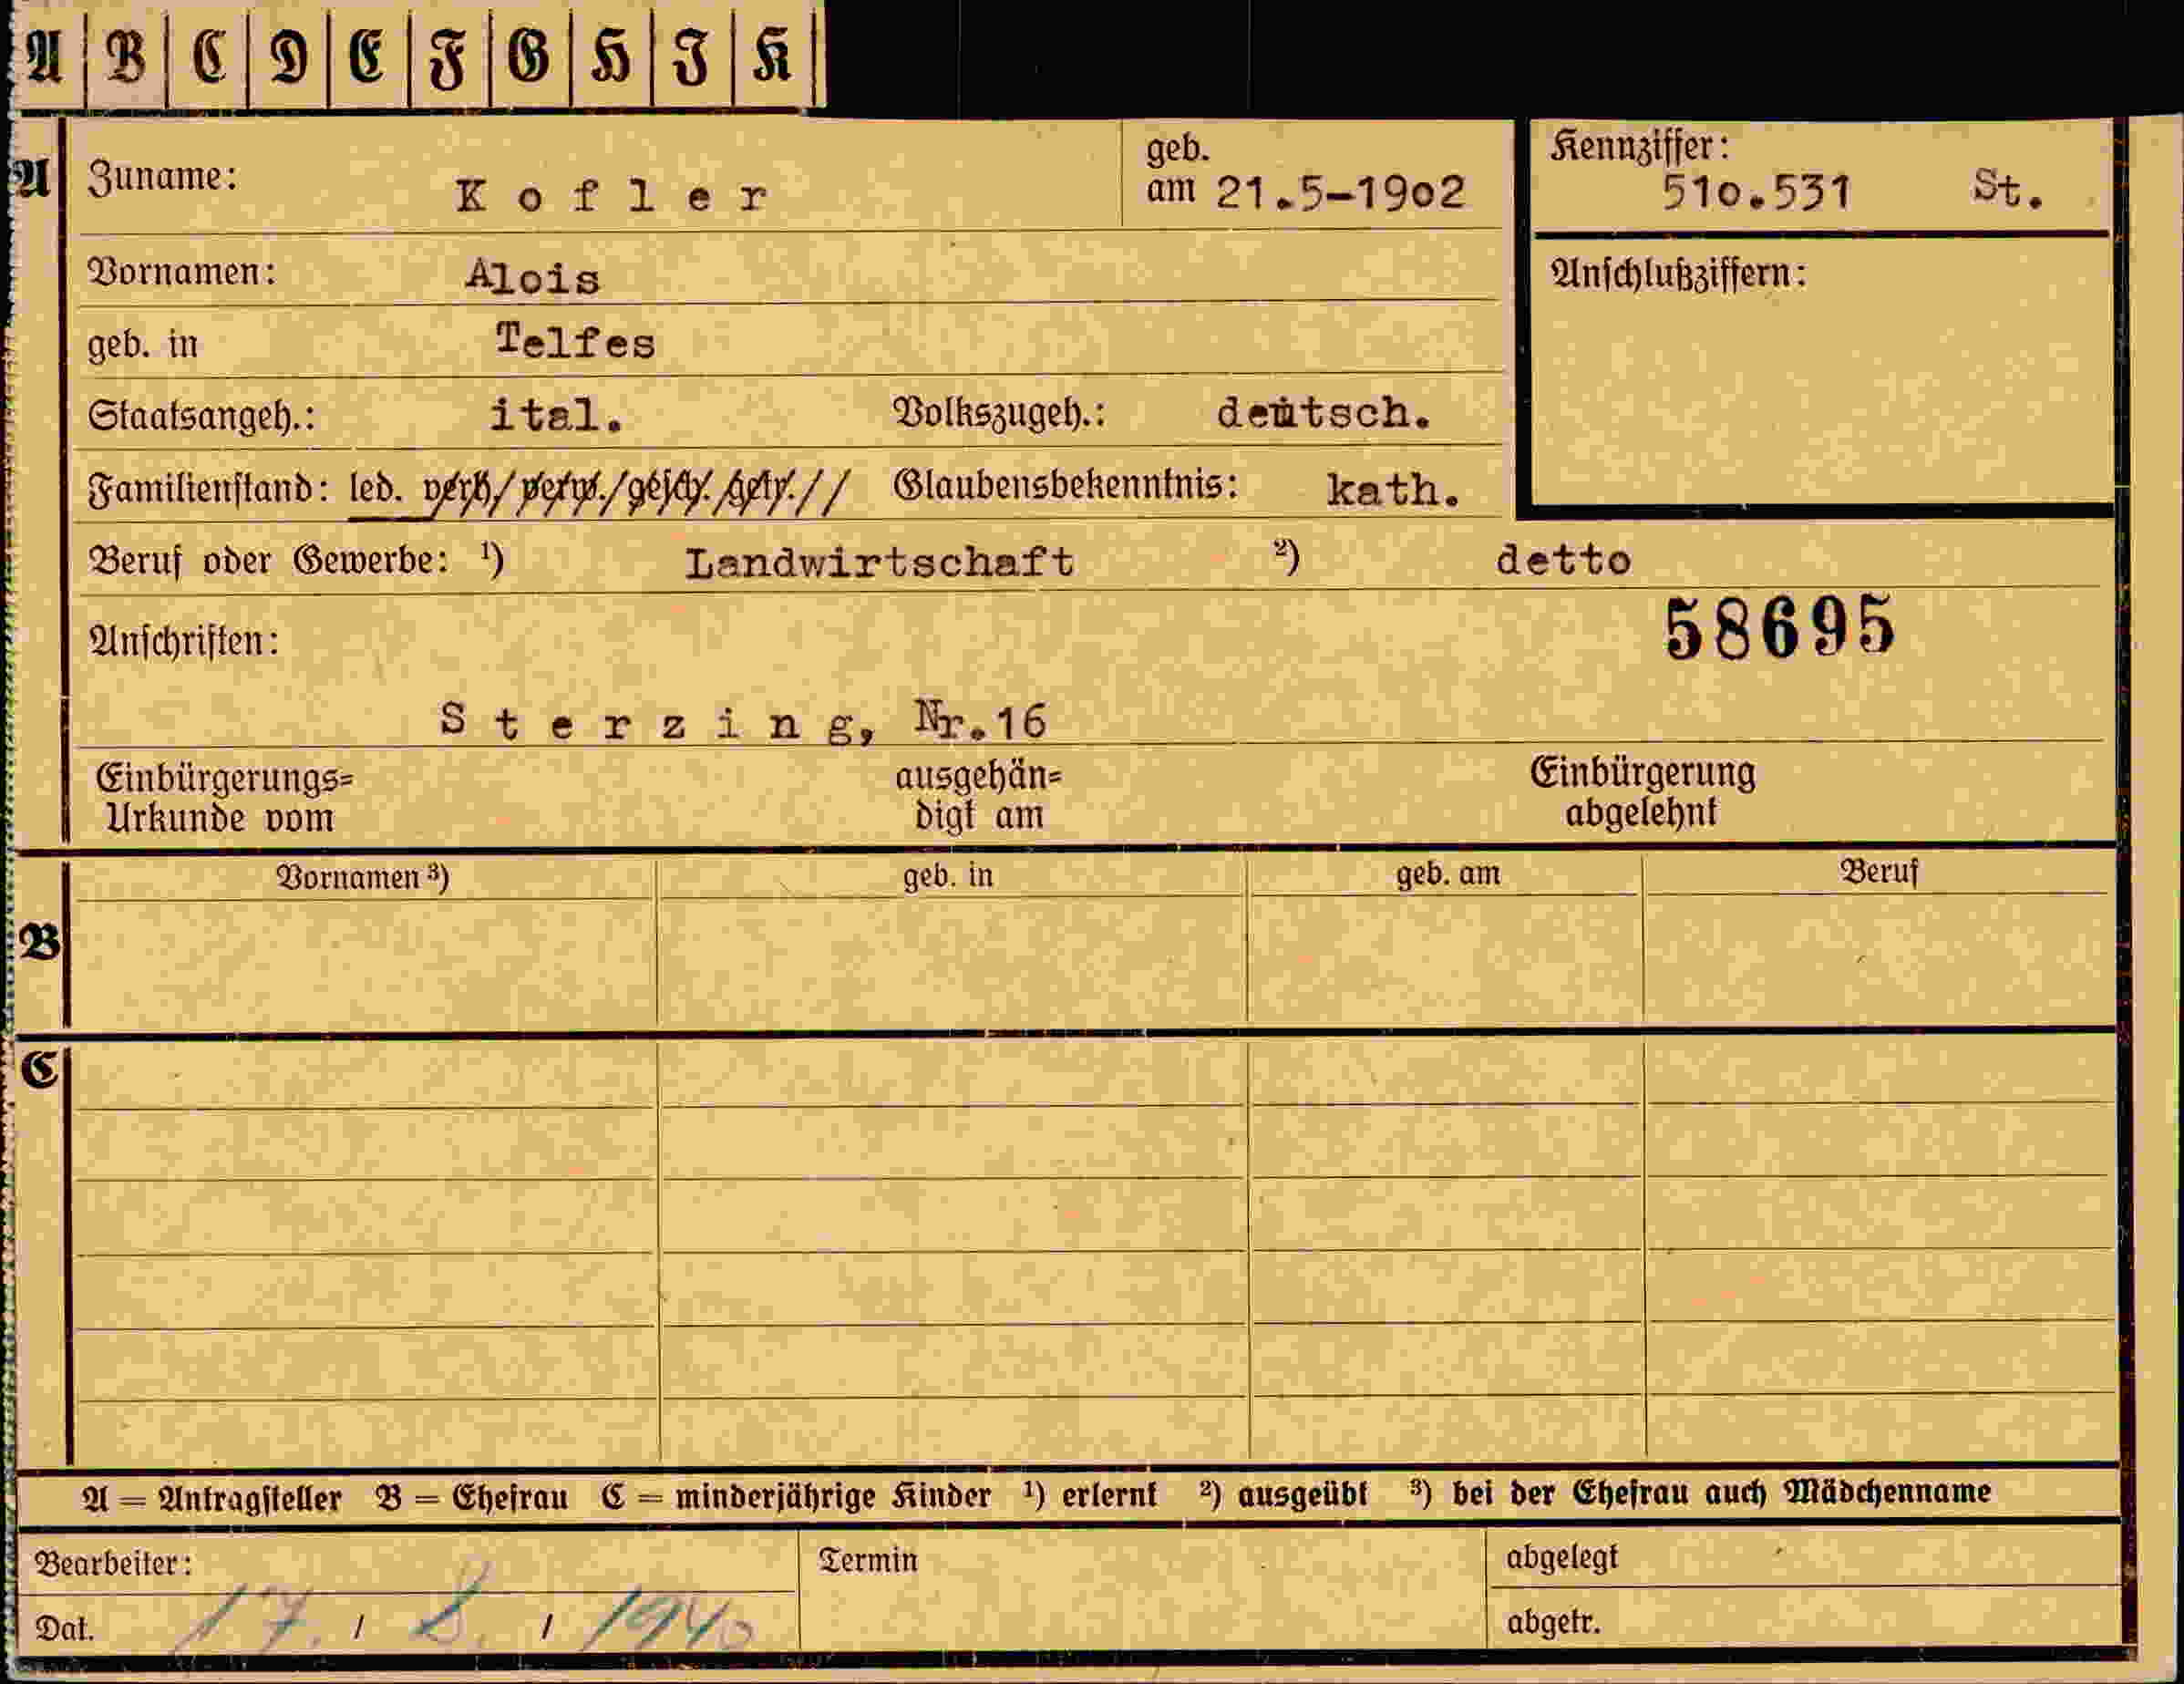 A B C D E F G H I K
A Zuname: Kofler geb. am 21.5-1902 Kennziffer: 510.531 St.
Vornamen: Alois Anschlußziffern:
geb. in Telfes
Staatsangeh.: ital. Volkszugeh.: deutsch.
Familienstand: led. verh./verw./gesch./getr.// Glaubensbekenntnis: kath.
Beruf oder Gewerbe: ¹) Landwirtschaft ²) detto
Anschriften: 58695
Sterzing, Nr.16
Einbürgerungs= ausgehän= Einbürgerung
Urkunde vom digt am abgelehnt
Vornamen ³) geb. in geb. am Beruf
B
C
A = Antragsteller B = Ehefrau C = minderjährige Kinder ¹) erlernt ²) ausgeübt ³) bei der Ehefrau auch Mädchenname
Bearbeiter: Termin abgelegt
Dat. 17. / 8. / 1940 abgetr.